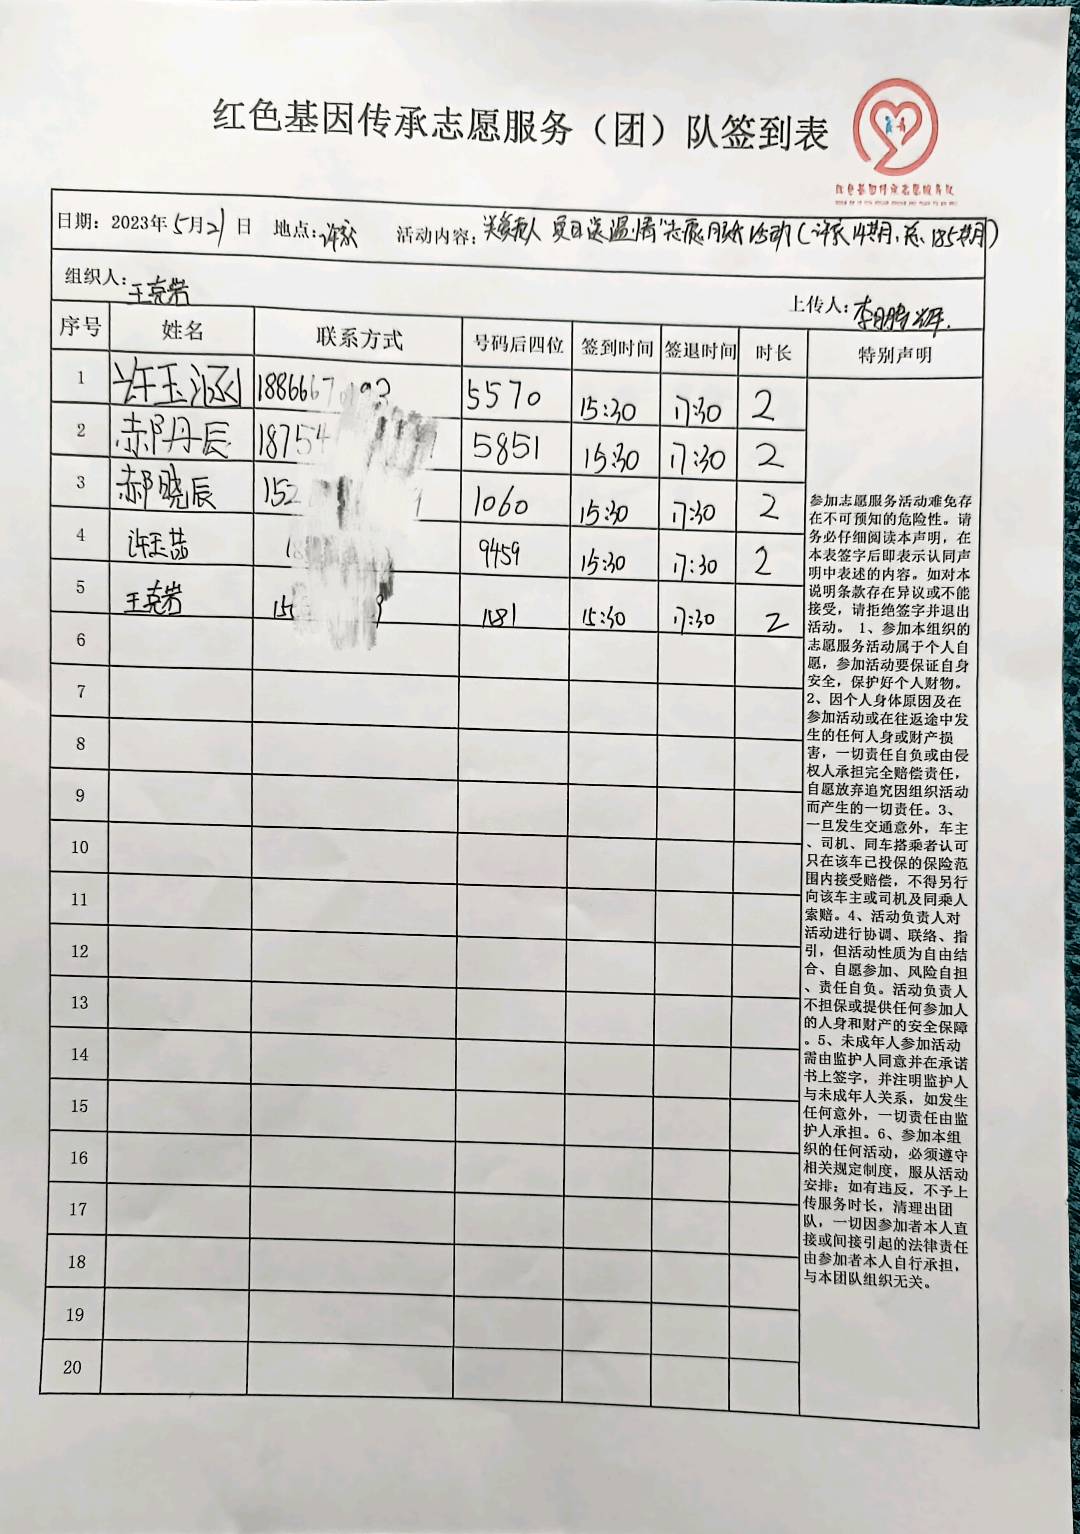 红色基因传承志愿服务（团）队签到表
红色基因传承志愿服务队
日期：2023年5月21日 地点：许家 活动内容：关爱老人 夏日送温情"志愿服务活动（许家14期，总185期）
组织人：王克岩
上传人：李鹏辉
序号 姓名 联系方式 号码后四位 签到时间 签退时间 时长 特别声明
1 许玉涵 1886667 5570 15:30 17:30 2
2 郝丹辰 18754 5851 15:30 17:30 2
3 郝晓辰 152 1060 15:30 17:30 2
4 许玉喆 18 9459 15:30 17:30 2
5 王克岩 15 9 1581 15:30 17:30 2
6
7
8
9
10
11
12
13
14
15
16
17
18
19
20
参加志愿服务活动难免存
在不可预知的危险性。请
务必仔细阅读本声明，在
本表签字后即表示认同声
明中表述的内容。如对本
说明条款存在异议或不能
接受，请拒绝签字并退出
活动。 1、参加本组织的
志愿服务活动属于个人自
愿，参加活动要保证自身
安全，保护好个人财物。
2、因个人身体原因及在
参加活动或在往返途中发
生的任何人身或财产损
害，一切责任自负或由侵
权人承担完全赔偿责任，
自愿放弃追究因组织活动
而产生的一切责任。3、
一旦发生交通意外，车主
、司机、同车搭乘者认可
只在该车已投保的保险范
围内接受赔偿，不得另行
向该车主或司机及同乘人
索赔。4、活动负责人对
活动进行协调、联络、指
引，但活动性质为自由结
合、自愿参加、风险自担
、责任自负。活动负责人
不担保或提供任何参加人
的人身和财产的安全保障
。5、未成年人参加活动
需由监护人同意并在承诺
书上签字，并注明监护人
与未成年人关系，如发生
任何意外，一切责任由监
护人承担。6、参加本组
织的任何活动，必须遵守
相关规定制度，服从活动
安排；如有违反，不予上
传服务时长，清理出团
队，一切因参加者本人直
接或间接引起的法律责任
由参加者本人自行承担，
与本团队组织无关。